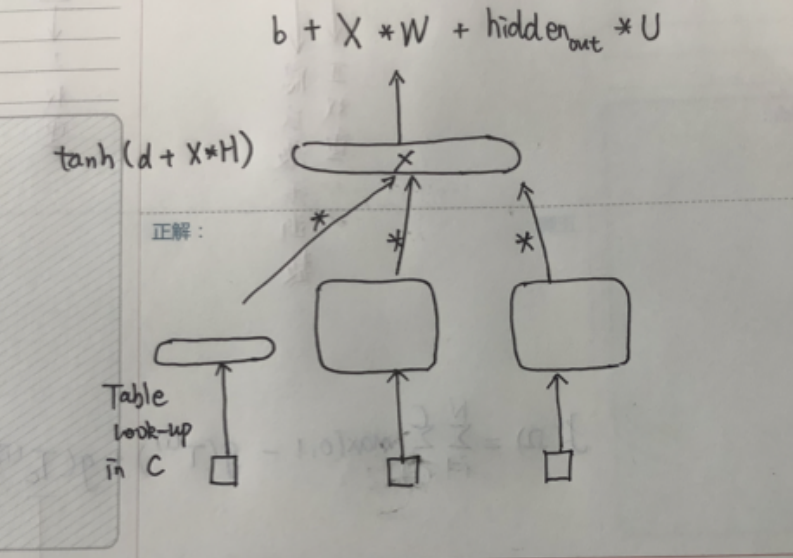 b + X * W + hidden out * U
tanh(d + X*H)
X
*
*
*
正解：
Table
look-up
in C